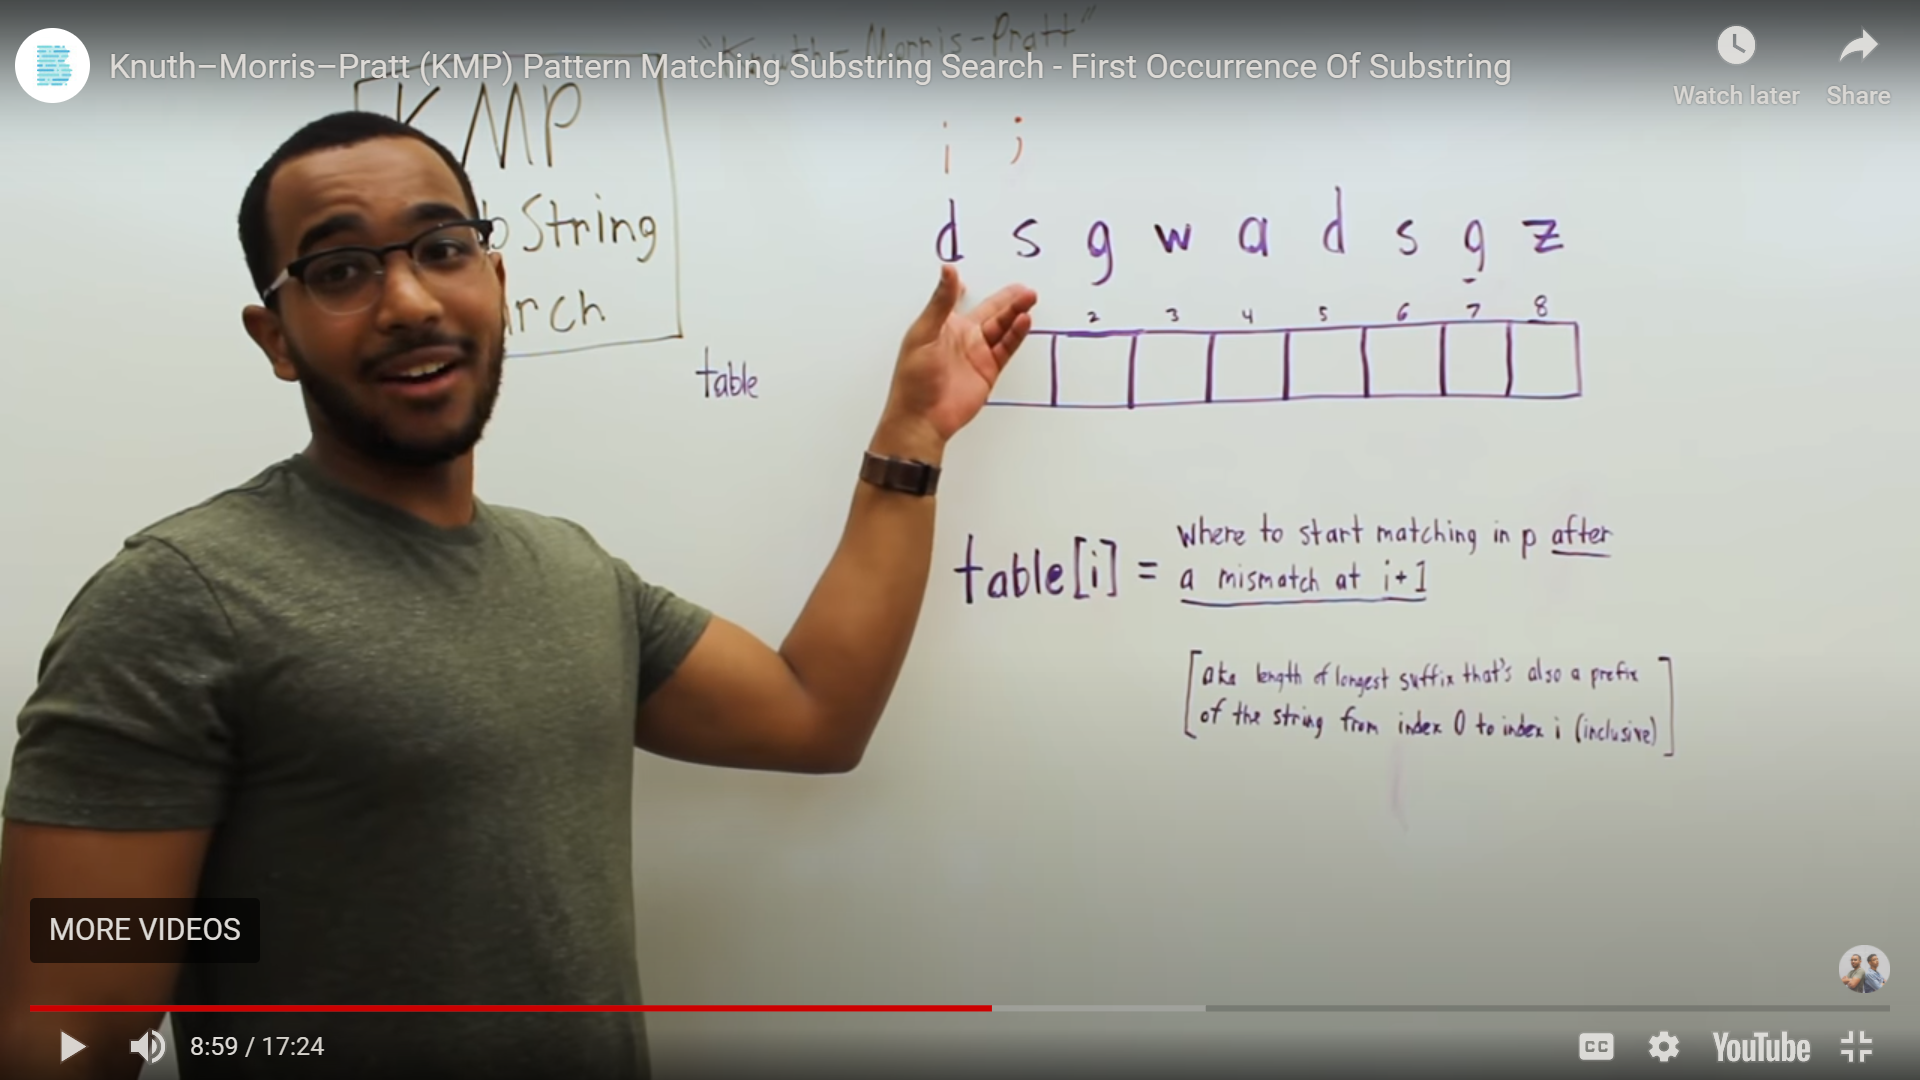 "Knuth-Morris-Pratt"
Knuth–Morris–Pratt (KMP) Pattern Matching Substring Search - First Occurrence Of Substring
Watch later
Share
KMP
String
i j
d s g w a d s g z
2 3 4 5 6 7 8
table
table[i] = where to start matching in p after
a mismatch at i+1
[aka length of longest suffix that's also a prefix
of the string from index 0 to index i (inclusive)]
MORE VIDEOS
8:59 / 17:24
CC
YouTube